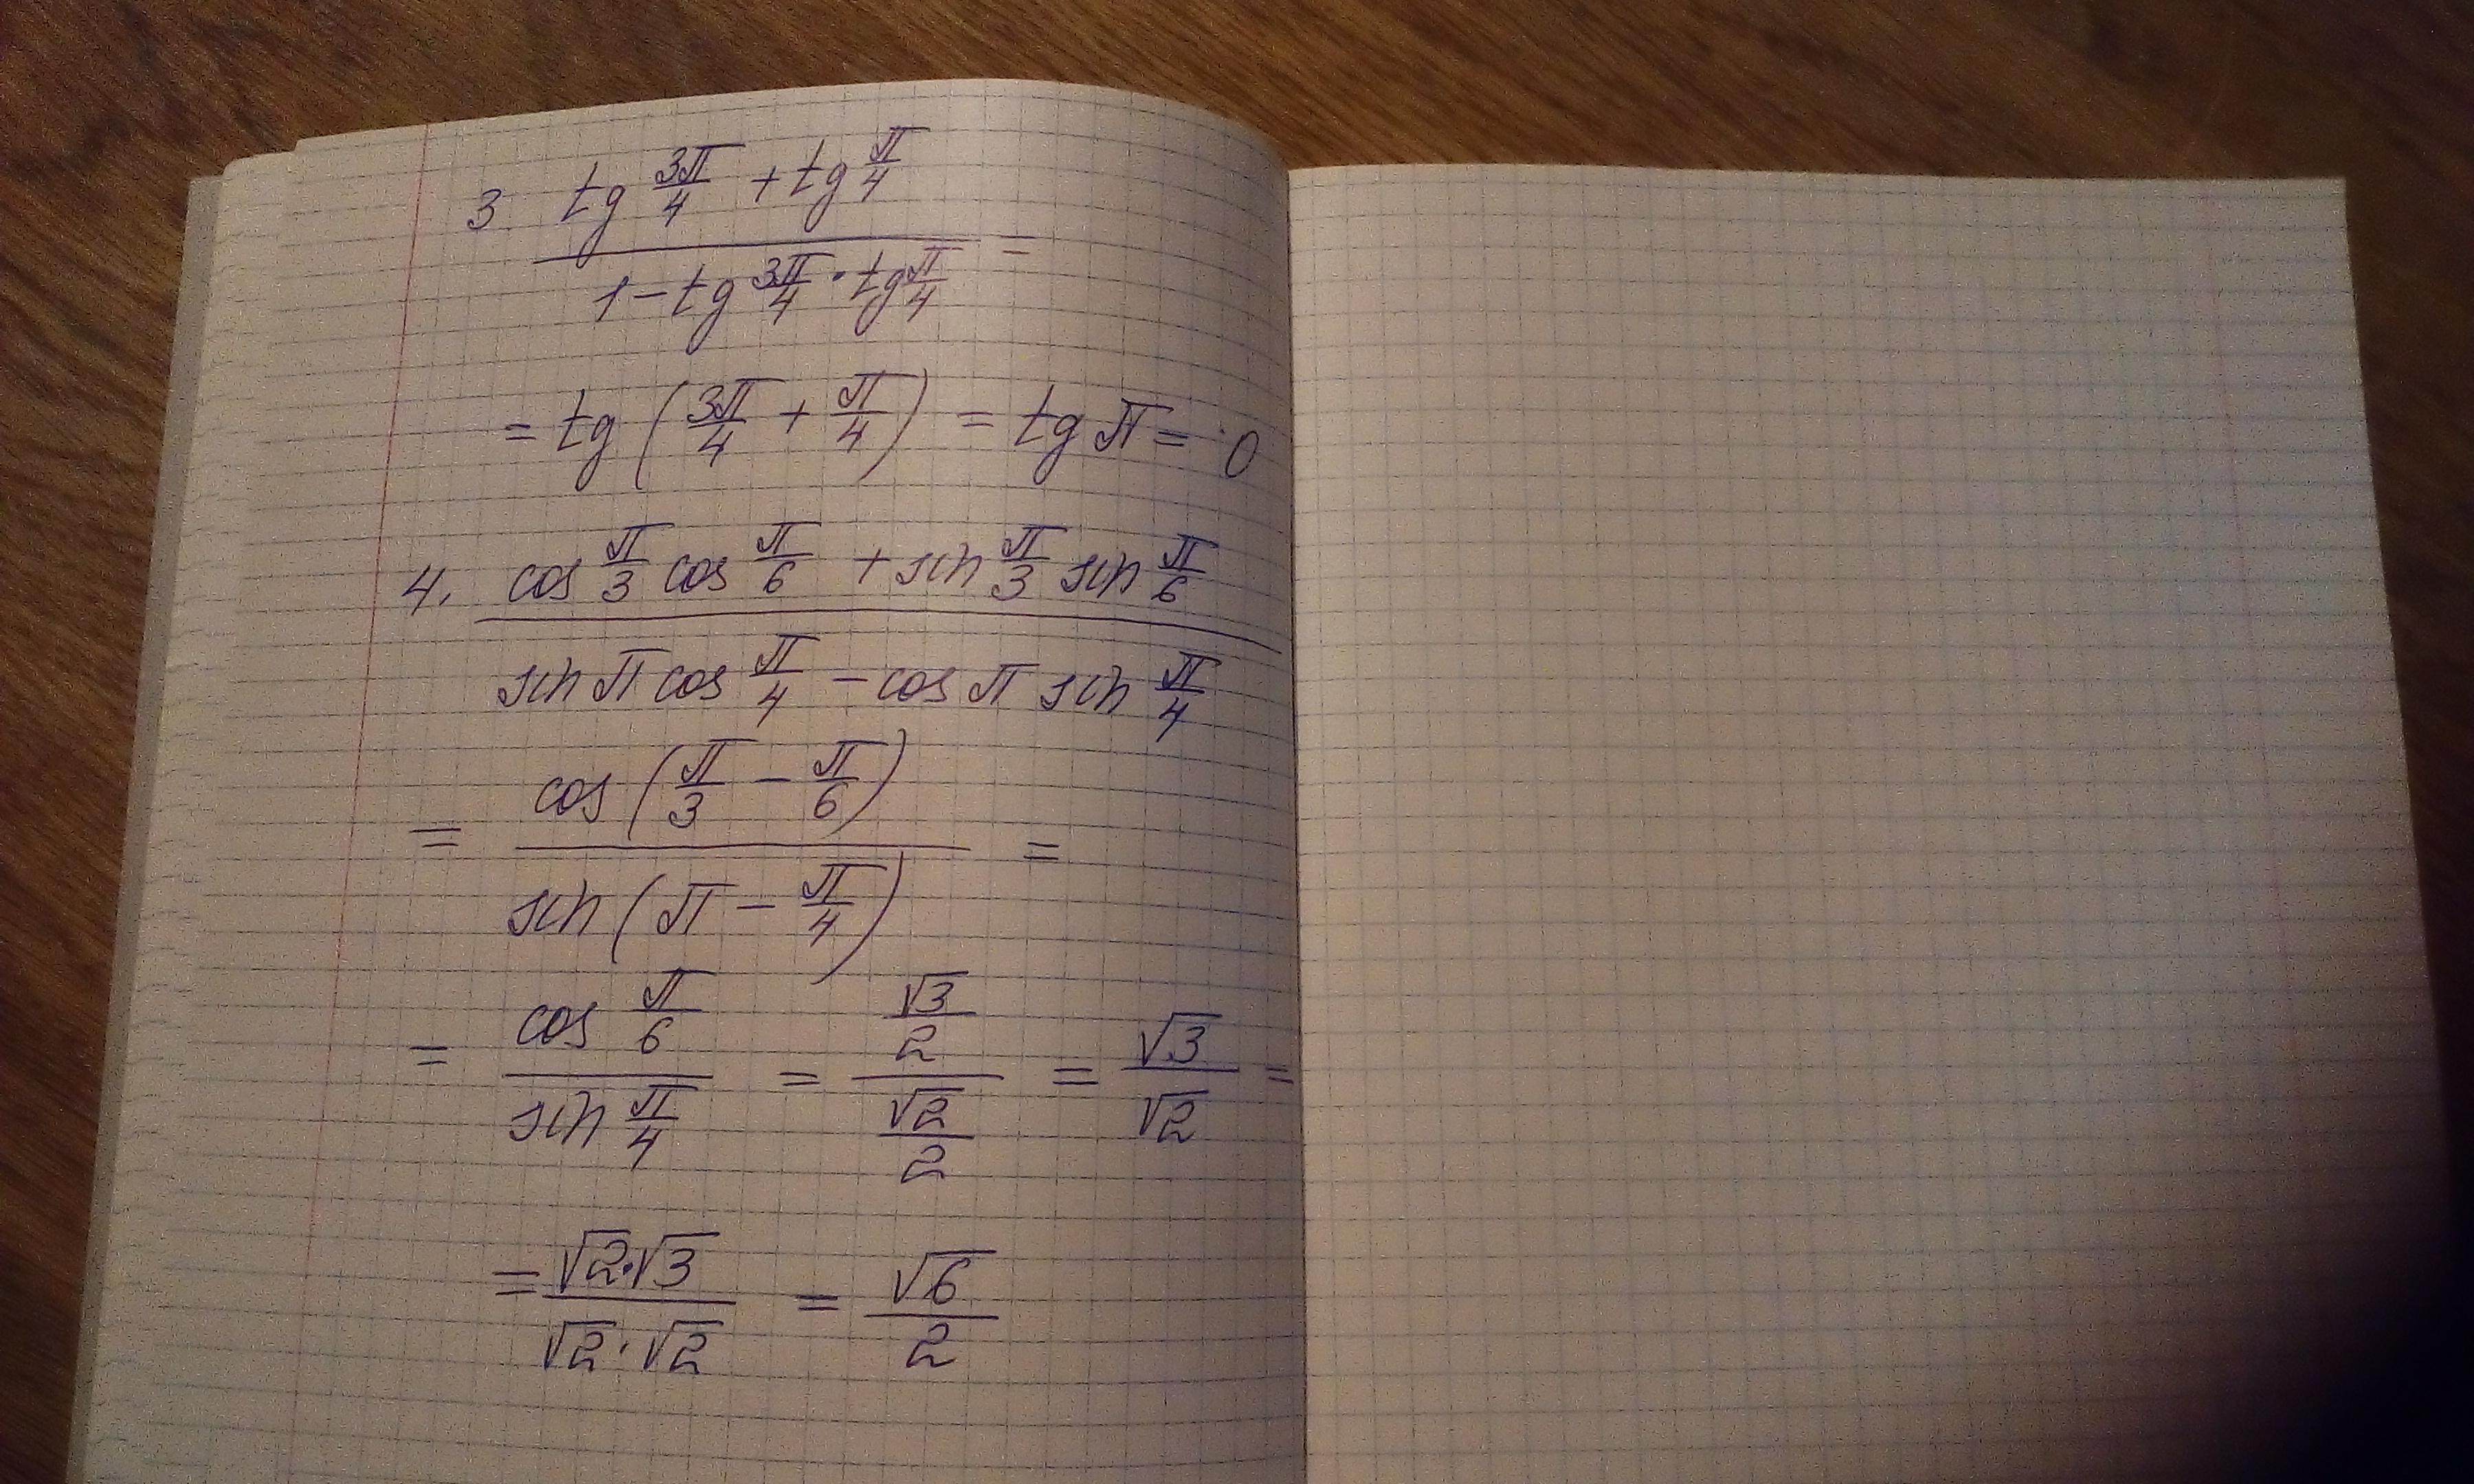 3. (tg 3π/4 + tg π/4) / (1 - tg 3π/4 · tg π/4) =
= tg (3π/4 + π/4) = tg π = 0
4. (cos π/3 cos π/6 + sin π/3 sin π/6) / (sin π cos π/4 - cos π sin π/4)
= cos (π/3 - π/6) / sin (π - π/4) =
= cos π/6 / sin π/4 = (√3/2) / (√2/2) = √3/√2 =
= (√2·√3) / (√2·√2) = √6/2